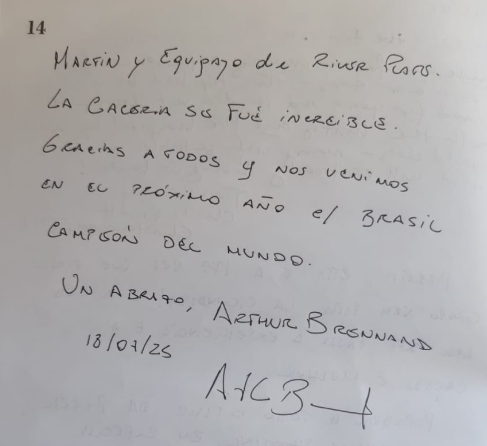 14
MARTIN y EQUIPAZO de RIVER PLATE.
LA CACERIA SE FUÉ INCREIBLE.
GRACIAS A TODOS y NOS VENIMOS
EN EL PRÓXIMO AÑO e/ BRASIL
CAMPEÓN DEL MUNDO.
UN ABRAZO, ARTHUR BRENNAND
18/07/25